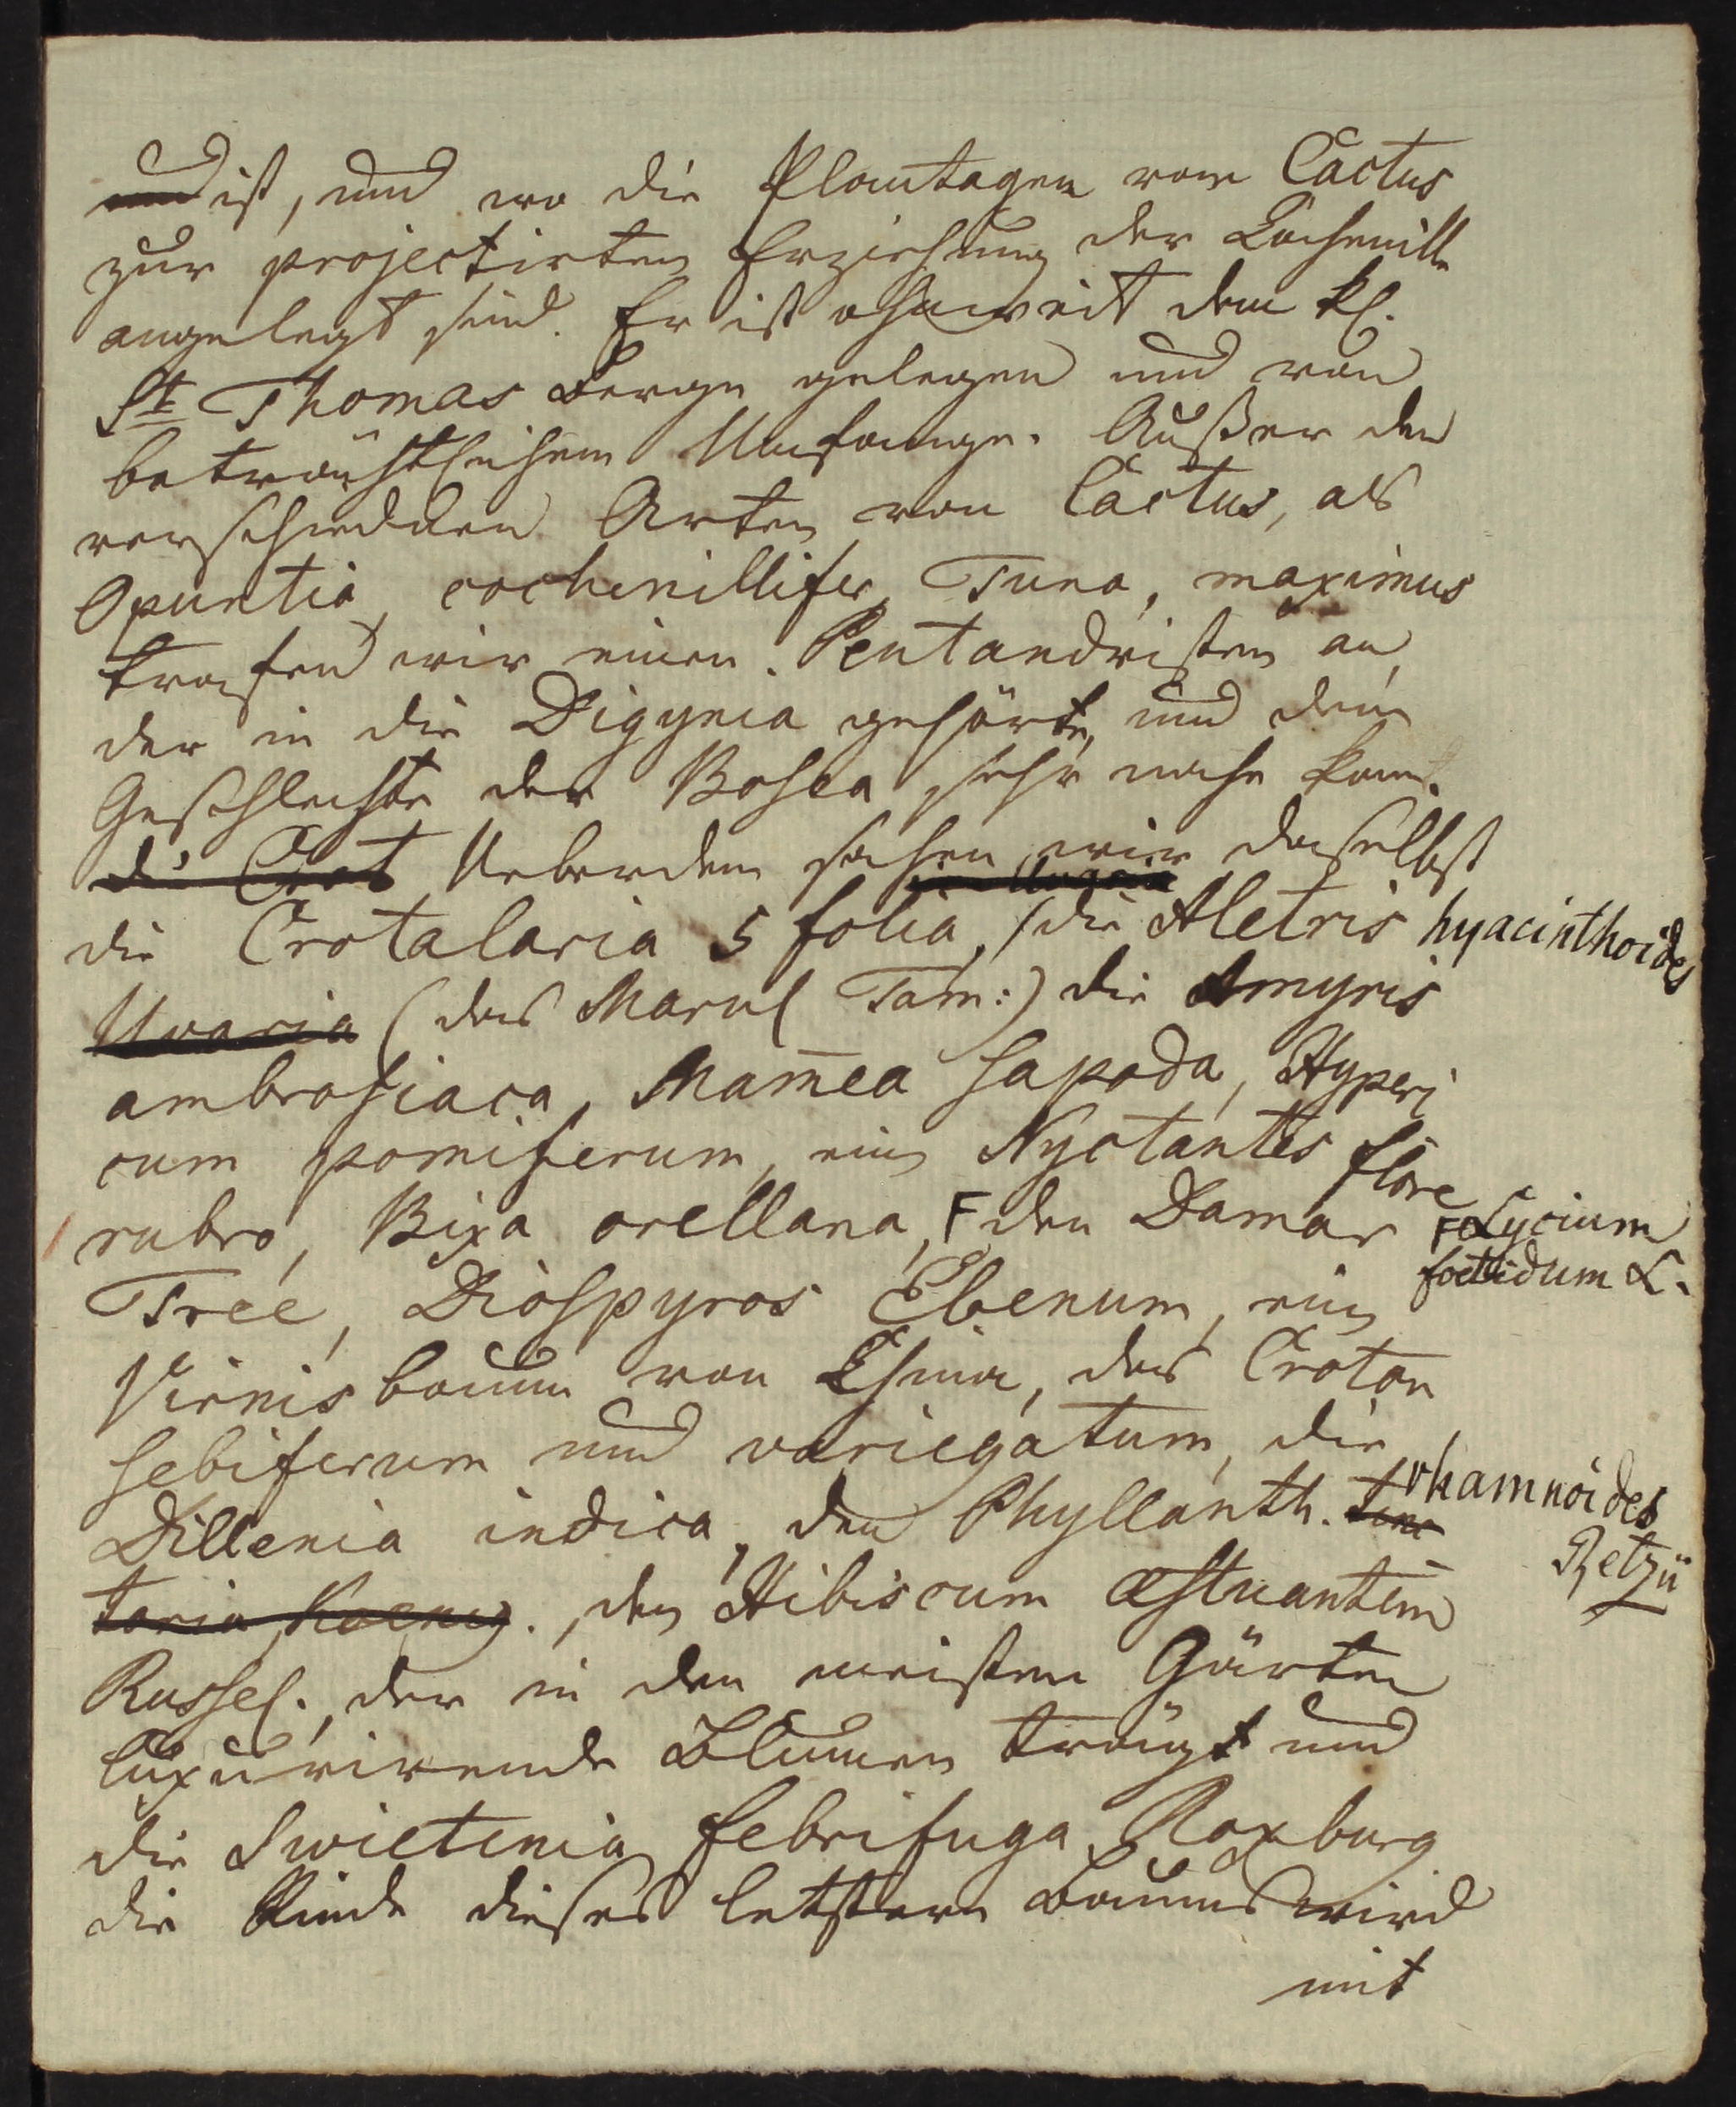 und ist, und wo die Plantagen vom Cactus
zur projectirten Erziehung der Cochenille
angelegt sind. Er ist ohnweit dem kl.
St Thomas Berge gelegen und von
beträchtlichem Umfange. Außer den
verschiednen Arten von Cactus, als
Opuntia, cochenillifer, Tuna, maximus
trafen wir einen Pentandristen an,
der in die Digynia gehörte, und dem
Geschlechte der Bosea sehr nahe komt.
die Crot Ueberdem sahen wir daselbst
die Crotalaria 5 folia, (die Aletris hyacinthoides
Uvaria (das Marul Tam:) die Amyris
ambrosiaca, Mam̄ea sapoda, Hyperi
cum pomiferum, ein Nyctantes flore
rubro, Bixa orellana, F den Damar F Lycium
foetidum L.
Tree, Diospyros Ebenum, ein
Virnisbaum von China, das Croton
sebiferum und variegatum, die
Dillenia indica, den Phyllanth. tinc rhamnoides
Retzii
toria Koenig., den Hibiscum æstuantem
Russel., der in den meisten Gärten
luxurirende Blumen trägt und
die Swietenia febrifuga Roxburg
die Rinde dieses letztern Baumes wird
mit